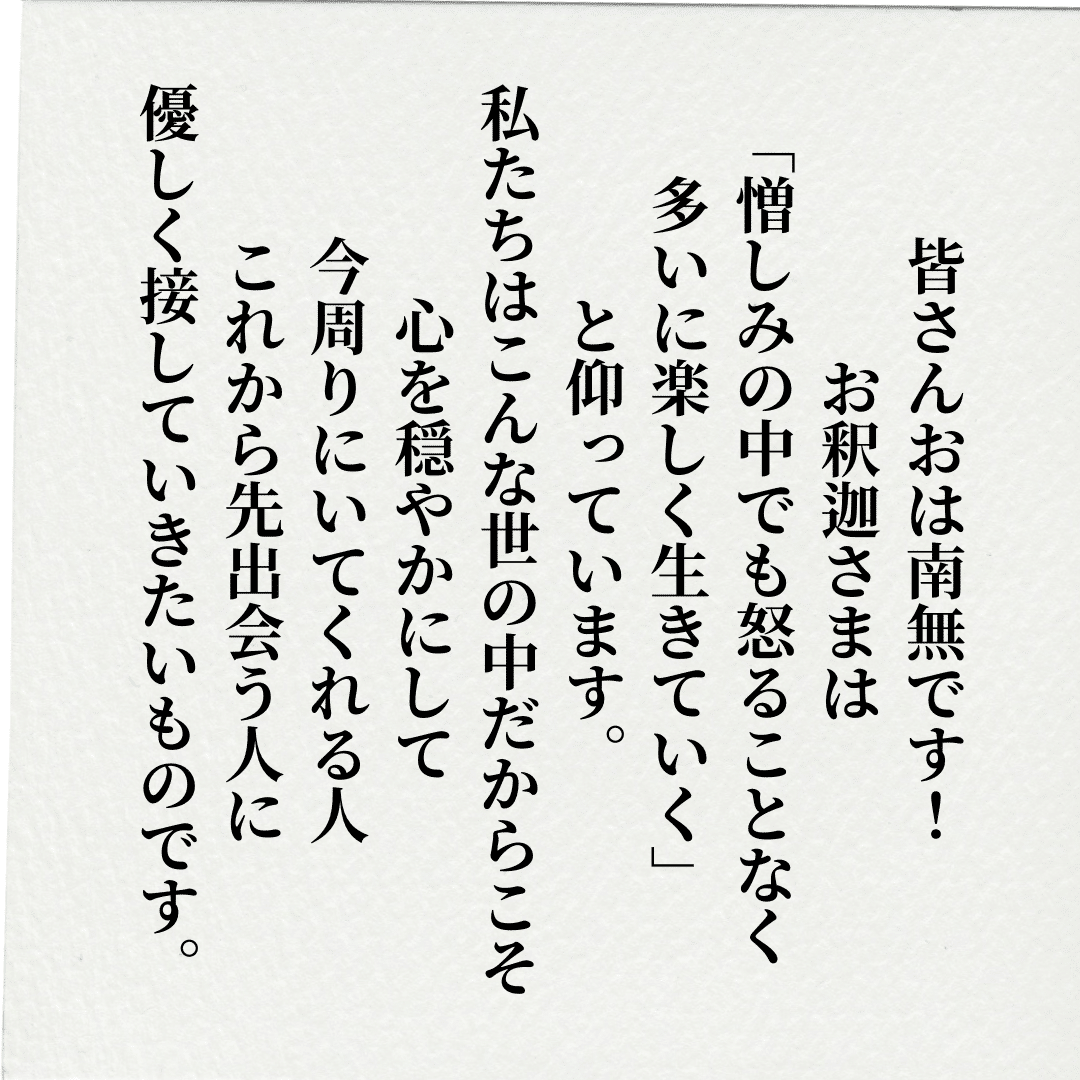 皆さんおは南無です！
お釈迦さまは
「憎しみの中でも怒ることなく
多いに楽しく生きていく」
と仰っています。
私たちはこんな世の中だからこそ
心を穏やかにして
今周りにいてくれる人
これから先出会う人に
優しく接していきたいものです。